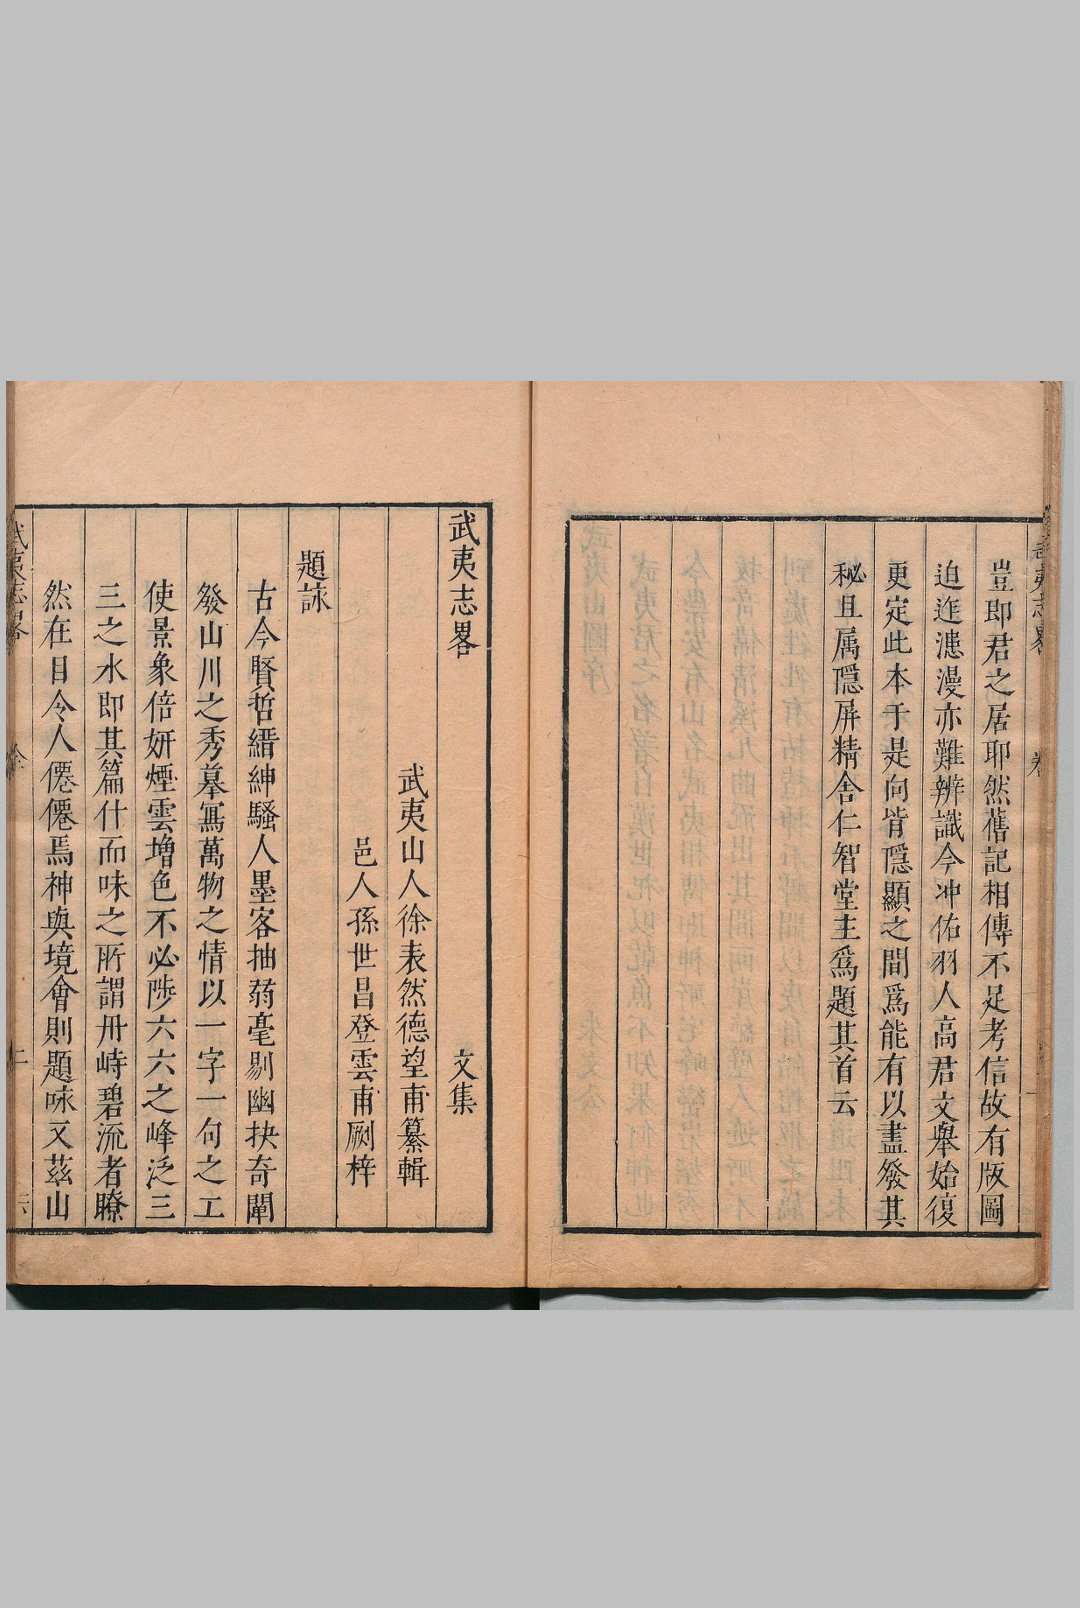 豈即君之居耶然舊記相傳不足考信故有版圖
迫迮漶漫亦難辨識今冲佑羽人高君文舉始復
更定此本于是向背隱顯之間爲能有以盡發其
秘且属隱屏精舍仁智堂主爲題其首云
武夷志畧 文集
武夷山人徐表然德望甫纂輯
邑人孫世昌登雲甫劂梓
題詠
古今賢哲縉紳騷人墨客抽蒭毫剔幽抉奇闡
發山川之秀摹寫萬物之情以一字一句之工
使景象倍妍煙雲增色不必陟六六之峰泛三
三之水即其篇什而味之所謂丹峙碧流者瞭
然在目令人僊僊焉神與境會則題咏又茲山
武夷志畧